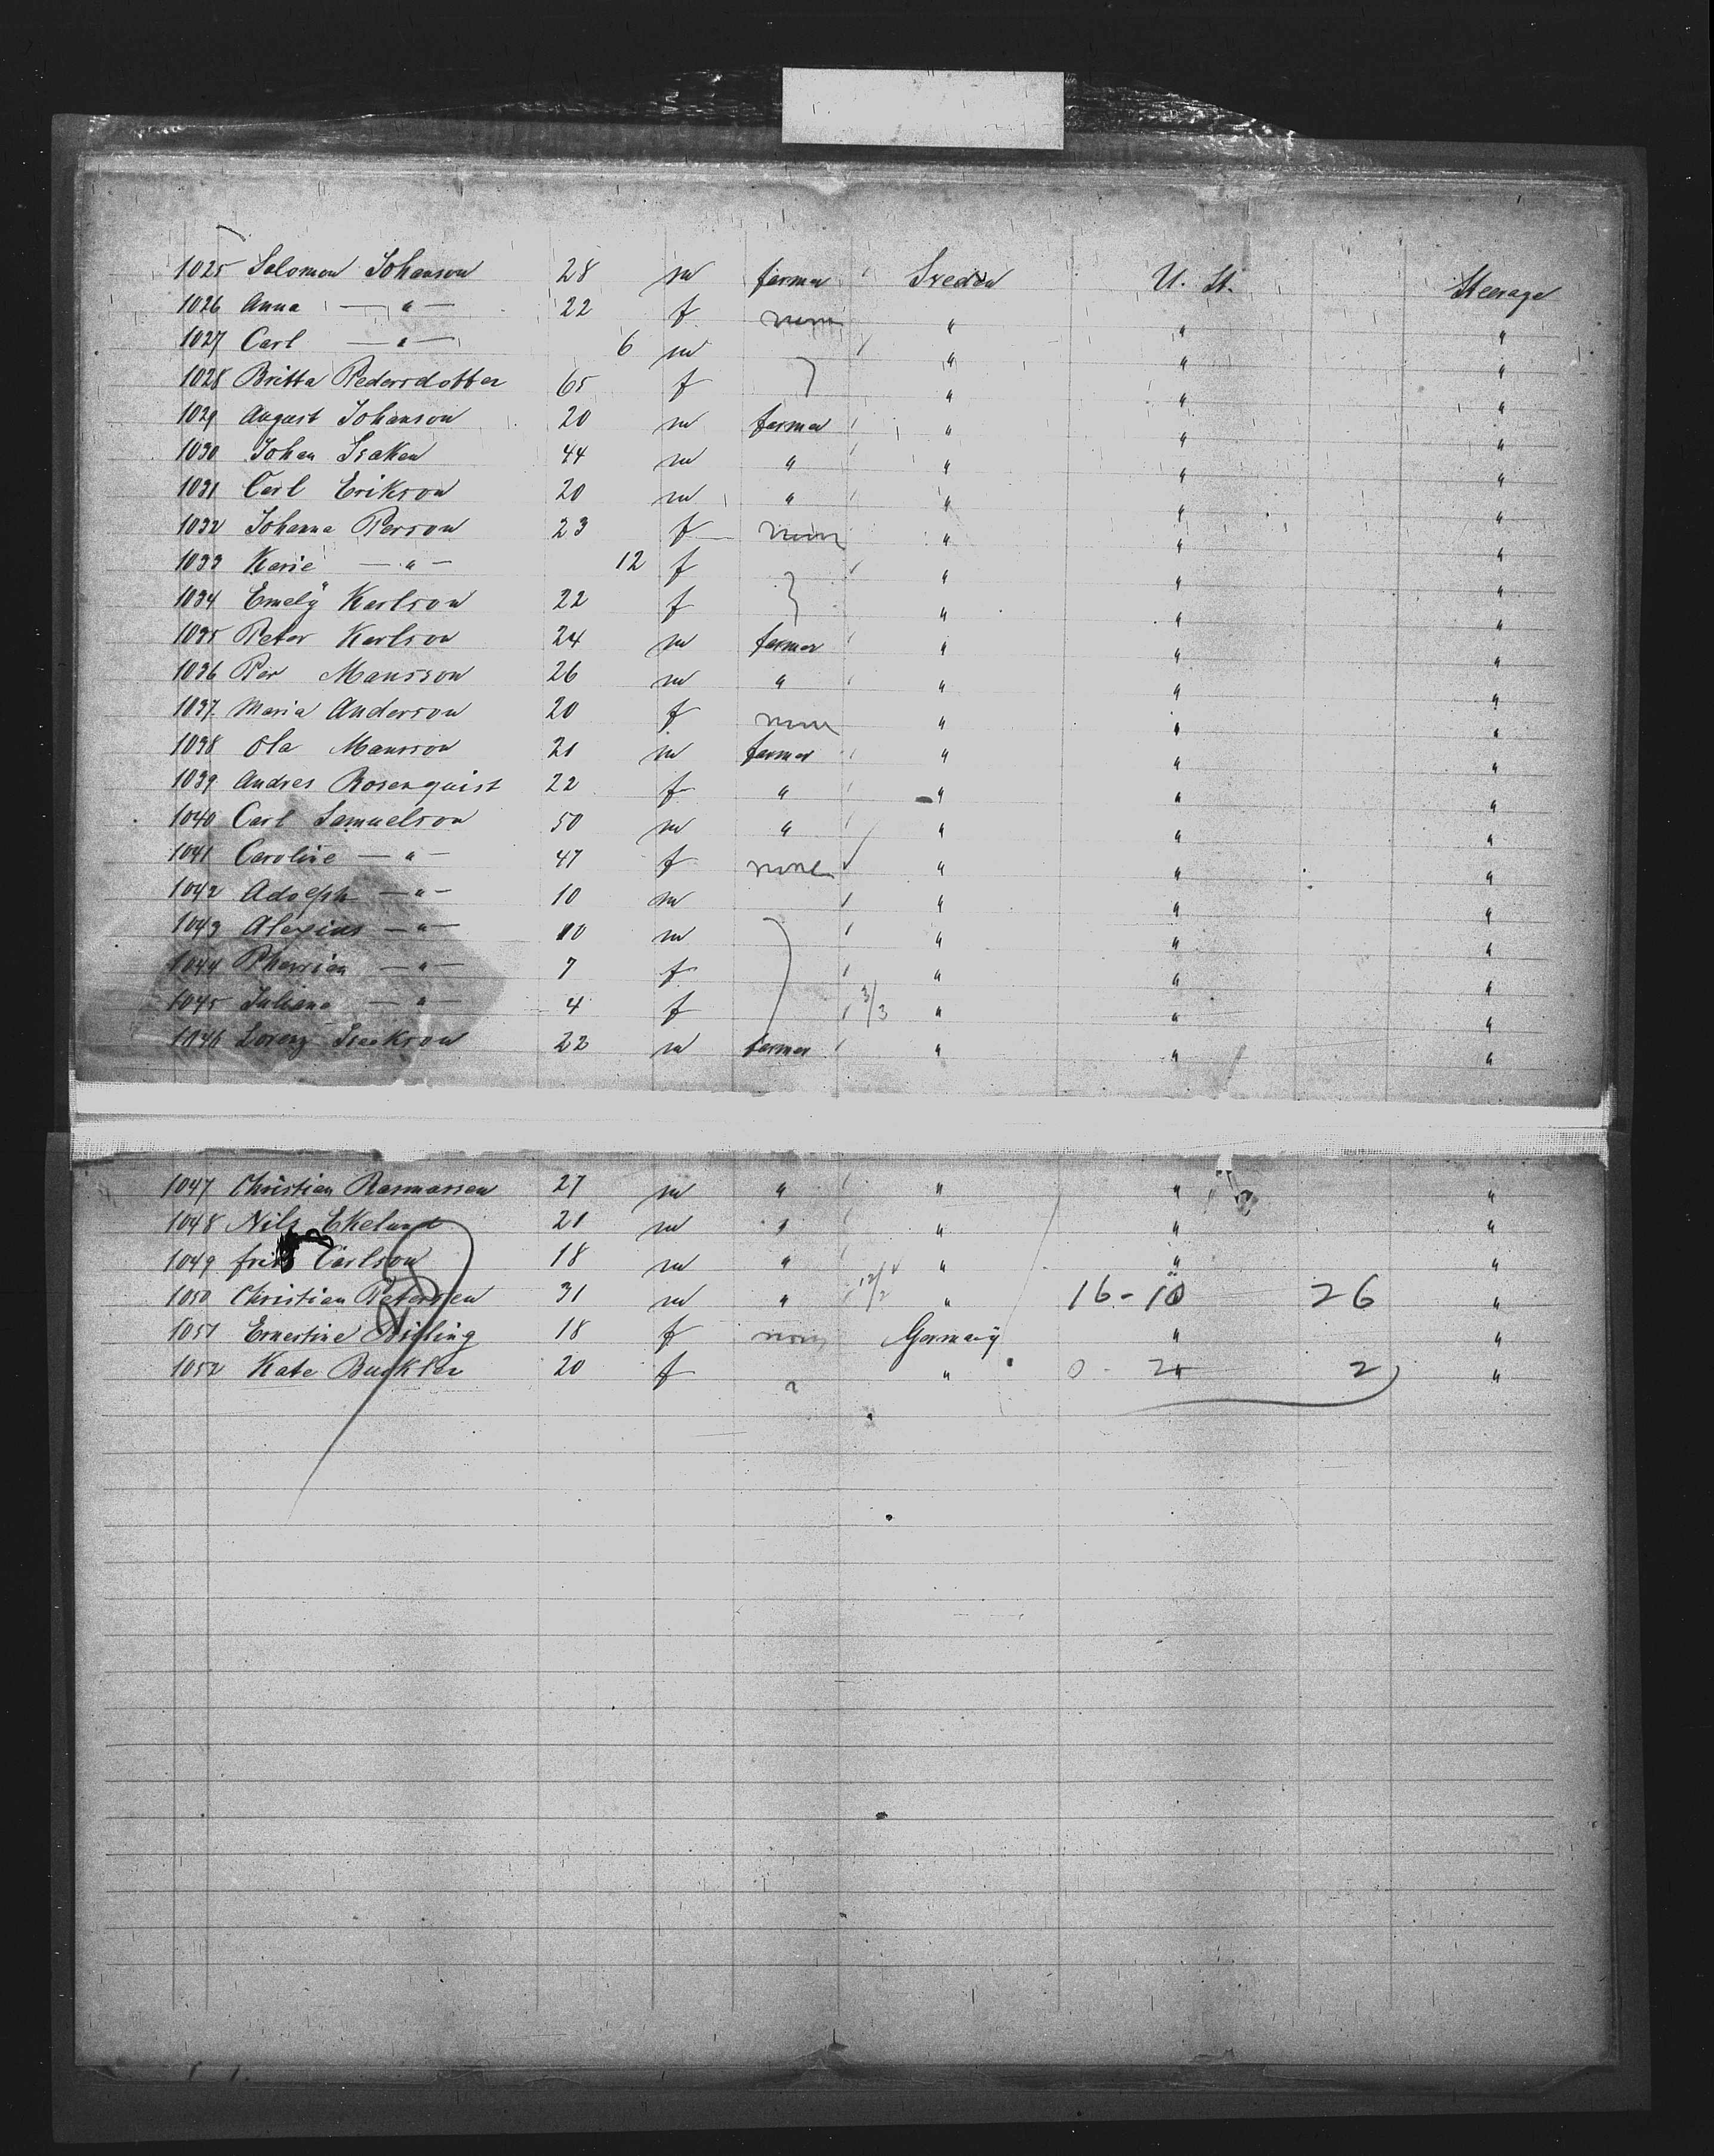 1025 Salomon Johanson 28 m farmer Sveden U. St. Steerage
1026 Anna — " — 22 f none " " "
1027 Carl — " — 6 m " " "
1028 Britta Pedersdotter 65 f " " "
1029 August Johanson 20 m farmer " " "
1030 Johan Isaken 44 m " " " "
1031 Carl Erikson 20 m " " " "
1032 Johanna Person 23 f none " " "
1033 Karie — " — 12 f " " "
1034 Emely Karlson 22 f " " "
1035 Peter Karlson 24 m farmer " " "
1036 Per Mansson 26 m " " " "
1037 Maria Anderson 20 f none " " "
1038 Ola Mansson 21 m farmer " " "
1039 Andres Rosenquist 22 f " " " "
1040 Carl Samuelson 50 m " " " "
1041 Caroline — " — 47 f none " " "
1042 Adolph — " — 10 m " " "
1043 Alexius — " — 10 m " " "
1044 — " — 7 f " " "
1045 Juliana — " — 4 f 3/3 " " "
1046 Lorenz Isaakson 22 m farmer " " "
1047 Christian Rasmassen 27 m " " " "
1048 Nils Ekelund 21 m " " " "
1049 fritz Carlson 18 m " " " "
1050 Christian Petersen 31 m " 12/2 " " 16-10 26 "
1051 Ernestine 18 f none Germany " "
1052 Kate Buckler 20 f " " 0-2 2 "